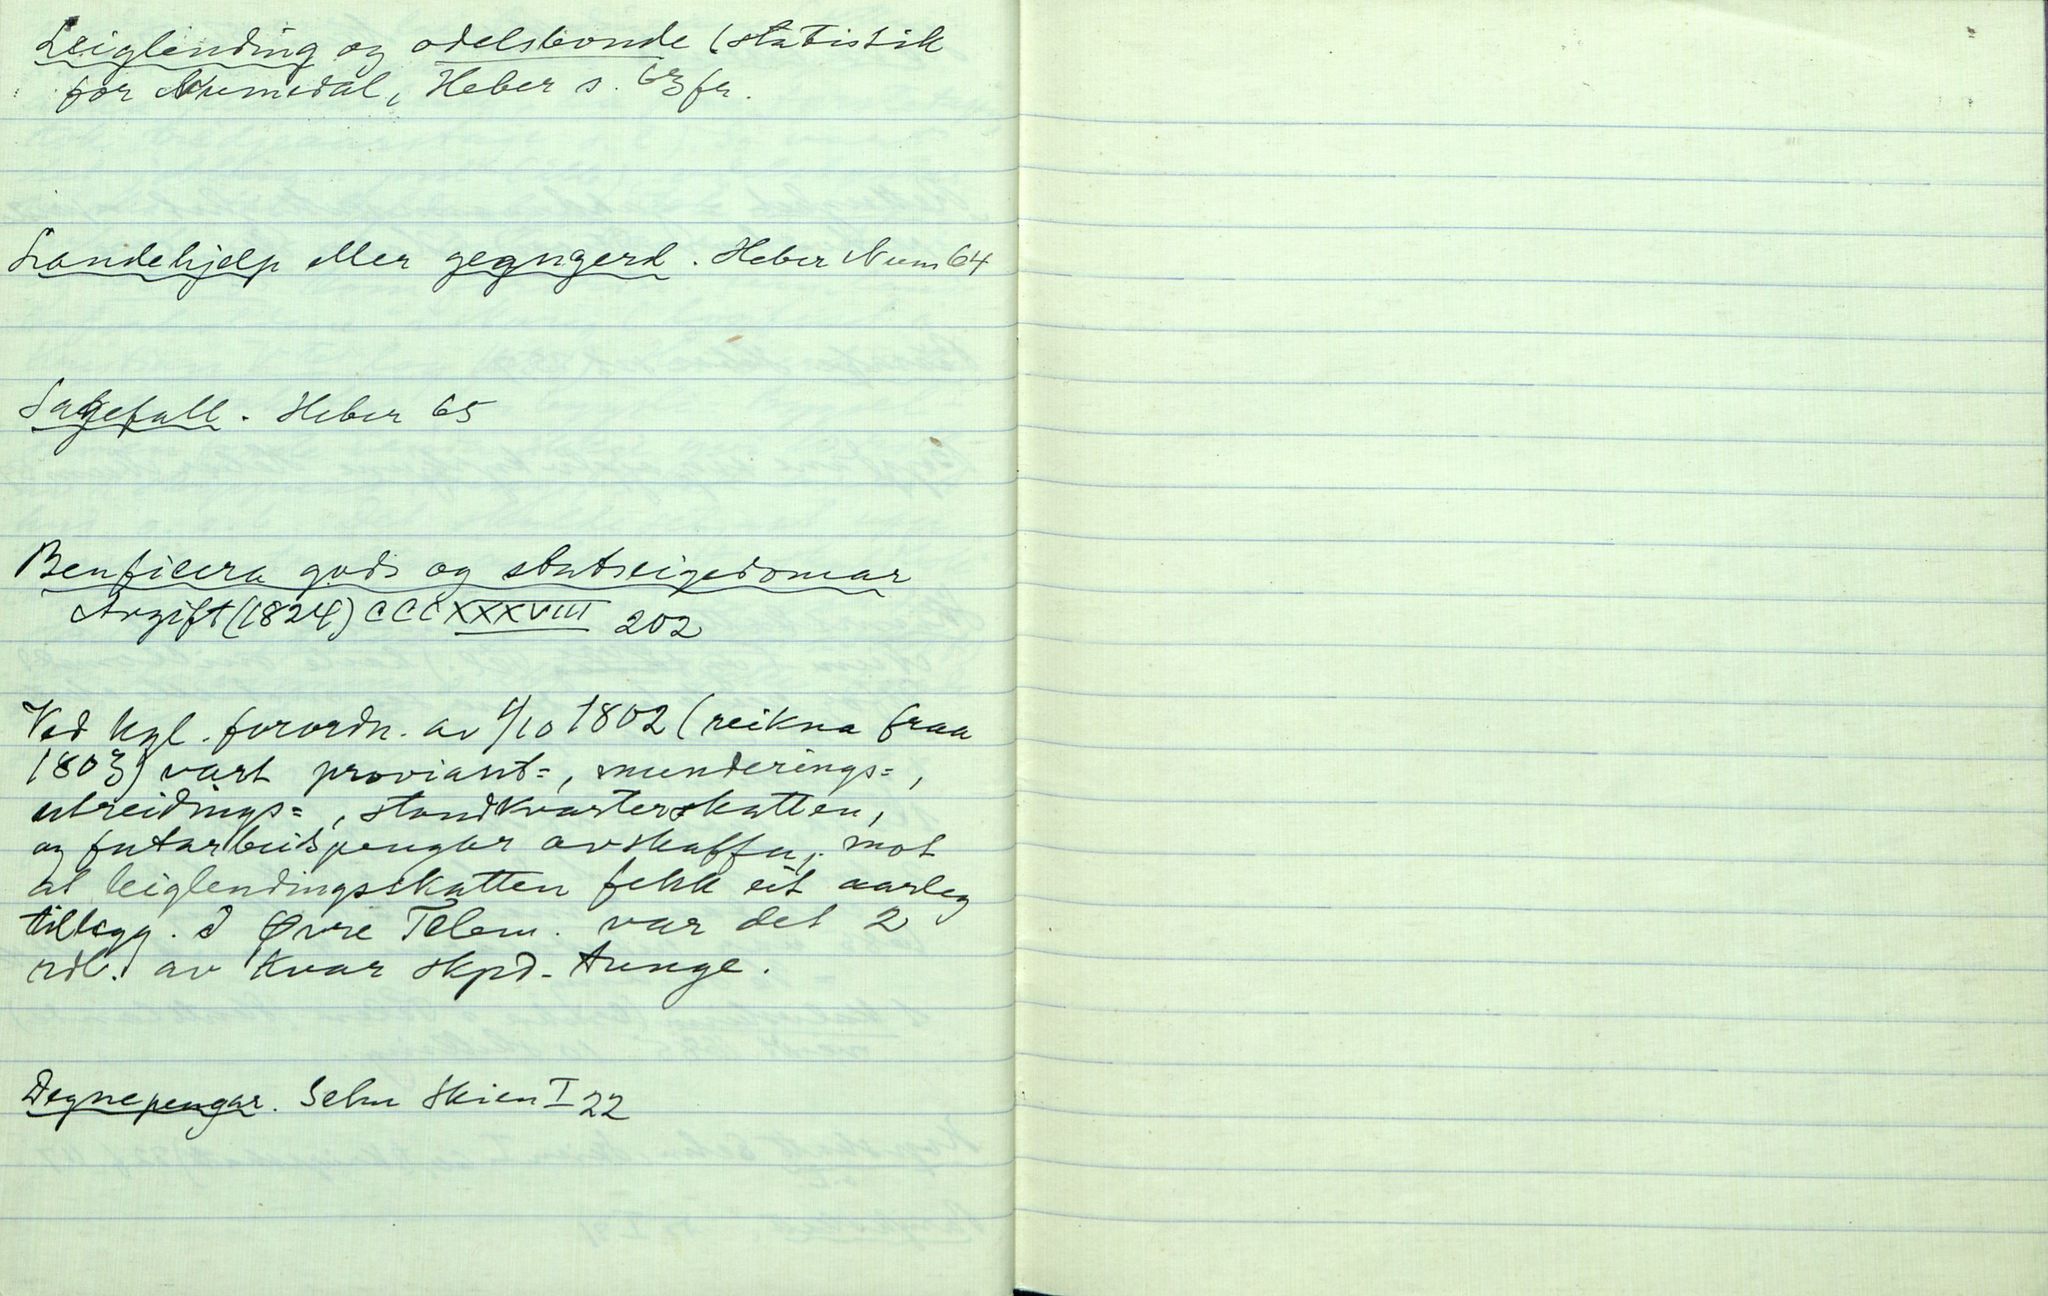 Leiglending og odelsbonde (statistik
for Numedal, Heber s. 63 fr.
Landehjelp eller gegngerd. Heber Num 64
Sagefall. Heber 65
Benficera gods og statseigedomar
Avgift (1824) CCCXXXVIII 202
Ved kgl. forordn. av 1/10 1802 (reikna fraa
1803) vart proviant=, munderings=,
utreidings=, standkvarterskatten,
og futarbeidspengar avskaffa, mot
at leiglendingsskatten fekk eit aarleg
tillegg. I Øvre Telem. var det 2
rdl. av kvar skpd. tunge.
Degnepengar. Selm Skien I 22